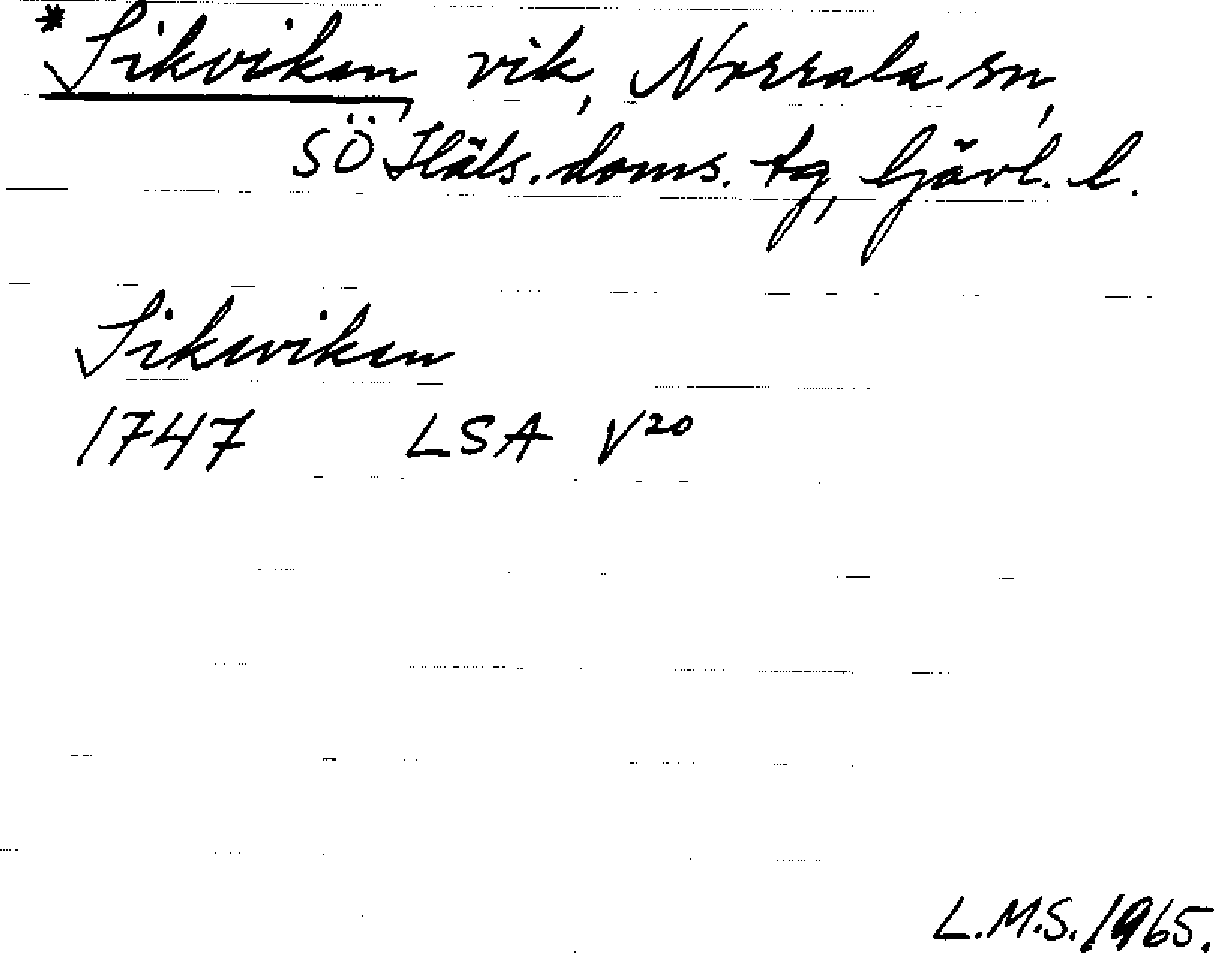 *Sikviken, vik, Norrala sn,
SÖ Häls. doms. tg, Gävl. l.
Sikwiken
1747 LSA V²⁰
L.M.S. 1965.